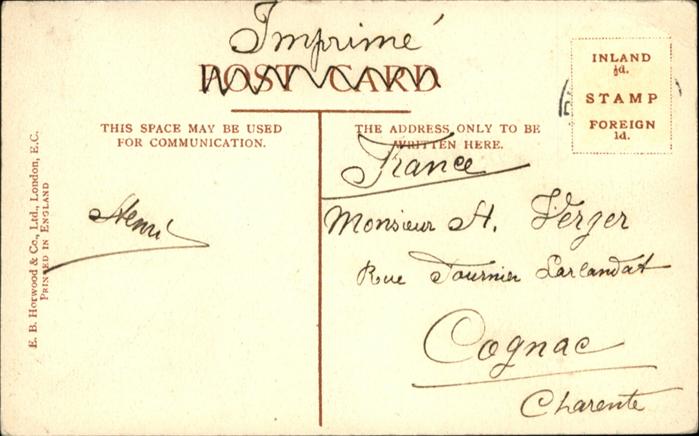 Imprimé
POST CARD
INLAND
½d.
STAMP
FOREIGN
1d.
THIS SPACE MAY BE USED
FOR COMMUNICATION.
THE ADDRESS ONLY TO BE
WRITTEN HERE.
France
Henri
Monsieur H. Verger
Rue Fournier Larlandat
Cognac
Charente
E. B. Horwood & Co., Ltd., London, E.C.
PRINTED IN ENGLAND